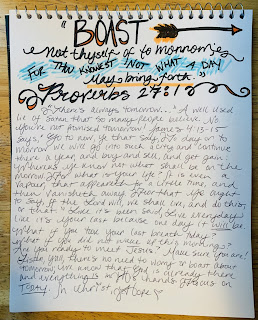 "BOAST
Not thyself of to morrow;
FOR THOU KNOWEST NOT WHAT A DAY
May bring forth."
Proverbs 27:1
"There's always tomorrow..." A well used
lie of Satan that so many people believe. No
you're not promised tomorrow! James 4:13-15
says "Go to now, ye that say, To day or to
morrow we will go into such a city, and continue
there a year, and buy and sell, and get gain:
Whereas ye know not what shall be on the
morrow. For what is your life? It is even a
vapour, that appeareth for a little time, and
then vanisheth away. For that ye ought
to say, If the Lord will, we shall live, and do this,
or that." I've seen said, Live everyday
like it's your last because one day it will be.
What if you took your last breath today?
What if you did not wake up this morning?
Are you ready to meet Jesus? Make sure you are!
you, there's no need to worry or boast about
tomorrow, we know that God is already there
and everything is in His hands. Focus on
Today. In Christ,